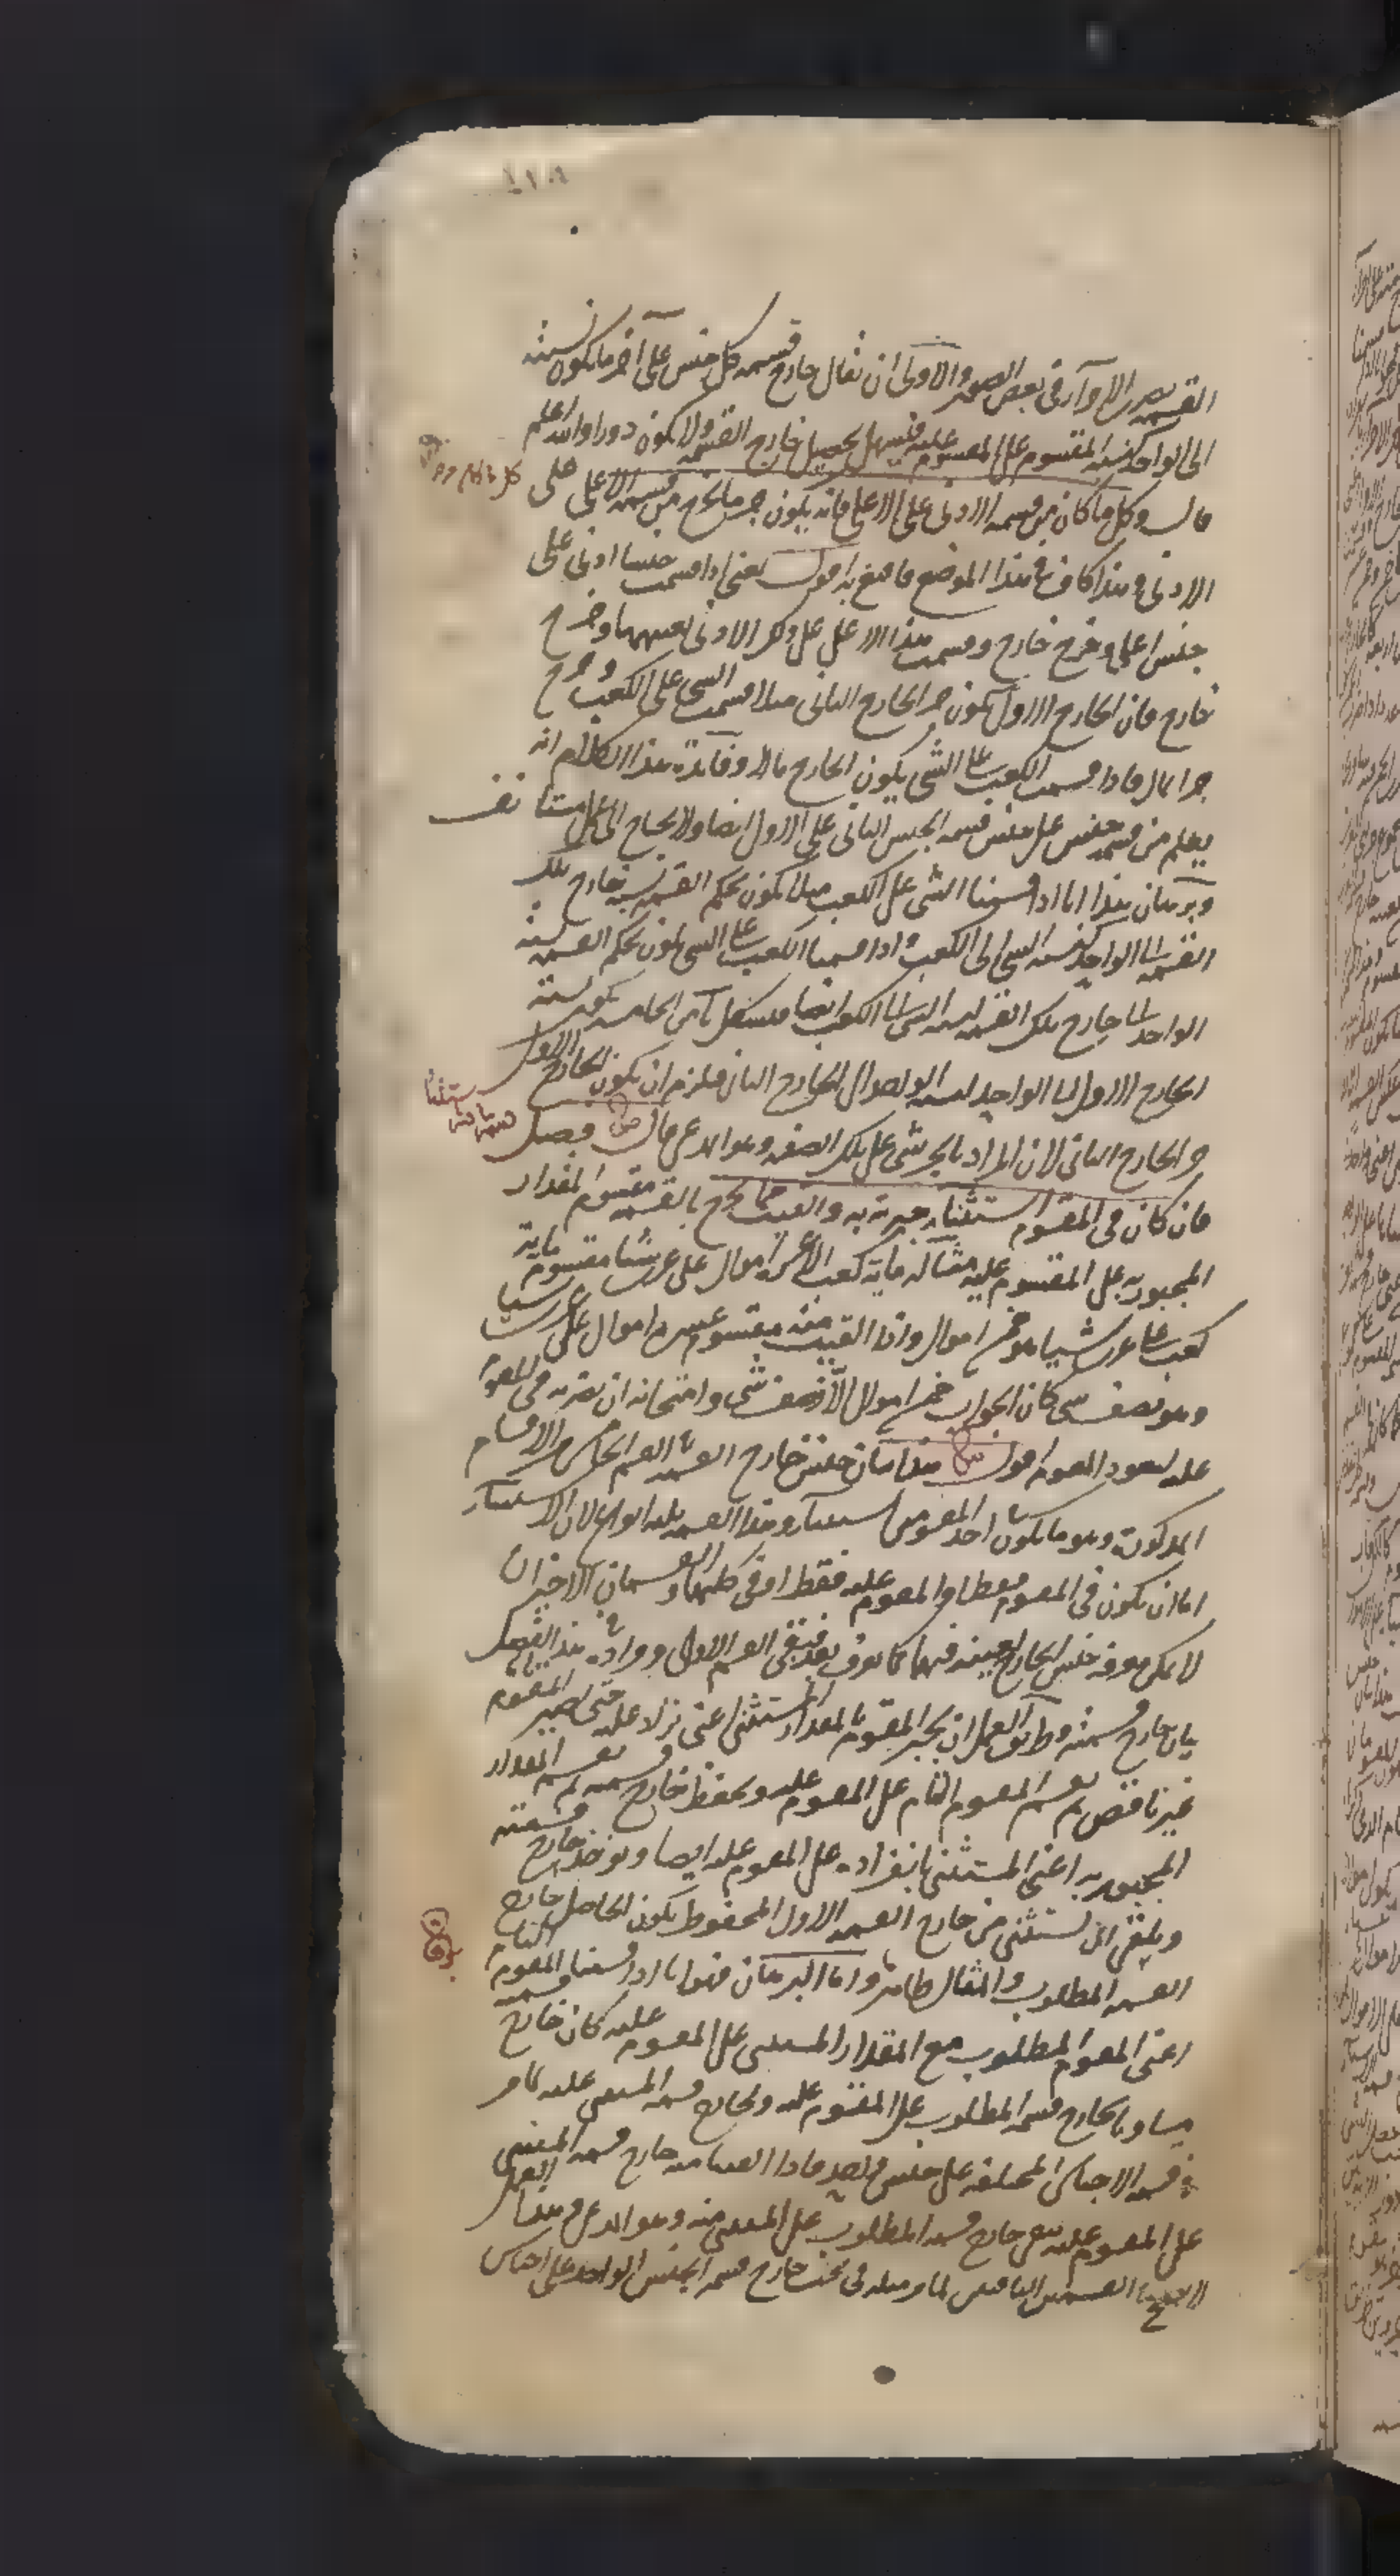 القسمة بصريح الاوآر فى بعض الصور والاولى ان يقال خارج قسمه كل جنس على آخر ما يكون نسبته
الى الواحد كنسبة المقسوم على المقسوم عليه فيسهل تحصيل خارج القسمة ولا يكون دورا والله اعلم
قال وكل ما كان من قسمه الادنى على الاعلى فانه يكون جزء ما يخرج من قسمة الاعلى على
الادنى وهذا كاف فى هذا الموضع فاقنع به اقول يعنى اذا قسمت جنسا ادنى على
جنس اعلى وخرج خارج وقسمت هذا الاعلى على ذلك الادنى بعينهما وخرج
خارج فان الخارج الاول يكون جزء الخارج الثانى مثلا قسمت الشى على الكعب وخرج
جزء المال فاذا قسمت الكعب على الشى يكون الخارج مالا وفائدة هذا الكلام انه
يعلم من قسمة جنس على جنس قسمة الجنس الثانى على الاول ايضا ولا يحتاج الى عمل مستانف
وبرهان هذا انا اذا قسمنا الشى على الكعب مثلا يكون بحكم القسمة نسبة خارج تلك
القسمة الى الواحد كنسبة الشى الى الكعب واذا قسمنا الكعب على الشى يكون بحكم القسمة نسبة
الواحد الى خارج تلك القسمة كنسبة الشى الى الكعب ايضا فبشكل يآ من الخامسة يكون نسبة
الخارج الاول الى الواحد كنسبة الواحد الى الخارج الثانى فيلزم ان يكون الخارج الاول
جزء الخارج الثانى لان المراد بالجزء شى على تلك الصفة وهو المدعى قال فصل
فان كان فى المقسوم استثناء جبرته به والقيت مما يخرج بالقسمة مقسوم المقدار
المجبور به على المقسوم عليه مثاله مائة كعب الا عشرة اموال على عشرين شيا مقسوم مائة
كعب على عشرين شيا هو خمسة اموال واذا القيت منه مقسوم عشرة اموال على عشرين شيا
وهو نصف شى كان الجواب خمسة اموال الا نصف شى وامتحانه ان تضربه فى المقسوم
عليه ليعود المقسوم اقول هذا بيان جنس خارج القسمة فى القسم الخامس من الاقسام
المذكورة وهو ما يكون فى احد المقسومين استثناء وهذا القسم ثلثة انواع لان الاستثناء
اما ان يكون فى المقسوم فقط او المقسوم عليه فقط او فى كليهما والقسمان الاخيران
لا يمكن معرفة جنس الخارج بعينه فيهما كما نعرف بعد فبقى القسم الاول ومراده فى هذا الفصل
بيان خارج قسمته وطريق العمل ان يجبر المقسوم بالمقدار المستثنى اعنى نزاد عليه حتى يصير المقسوم
غير ناقص ثم يقسم المقسوم التام على المقسوم عليه ويحفظ خارج قسمته ثم يقسم المقدار
المجبور به اعنى المستثنى بانفراده على المقسوم عليه ايضا ويوخذ خارج قسمته
ويلقى اى يستثنى من خارج القسمة الاول المحفوظ يكون الحاصل خارج
القسمة المطلوب والمثال ظاهر واما البرهان فهو انا اذا قسمنا المقسوم التام
اعنى المقسوم المطلوب مع المقدار المستثنى على المقسوم عليه كان خارج قسمته
مساويا لخارج قسمة المطلوب على المقسوم عليه ولخارج قسمة المستثنى عليه كما مر
فى قسمة الاجناس المختلفة على جنس واحد فاذا القينا منه خارج قسمة المستثنى
على المقسوم عليه بقى خارج قسمة المطلوب على المستثنى منه وهو المدعى وهذا العمل
لا يصح فى القسمين الباقيين لما مر مثله فى بحث خارج قسمة الجنس الواحد على اجناس